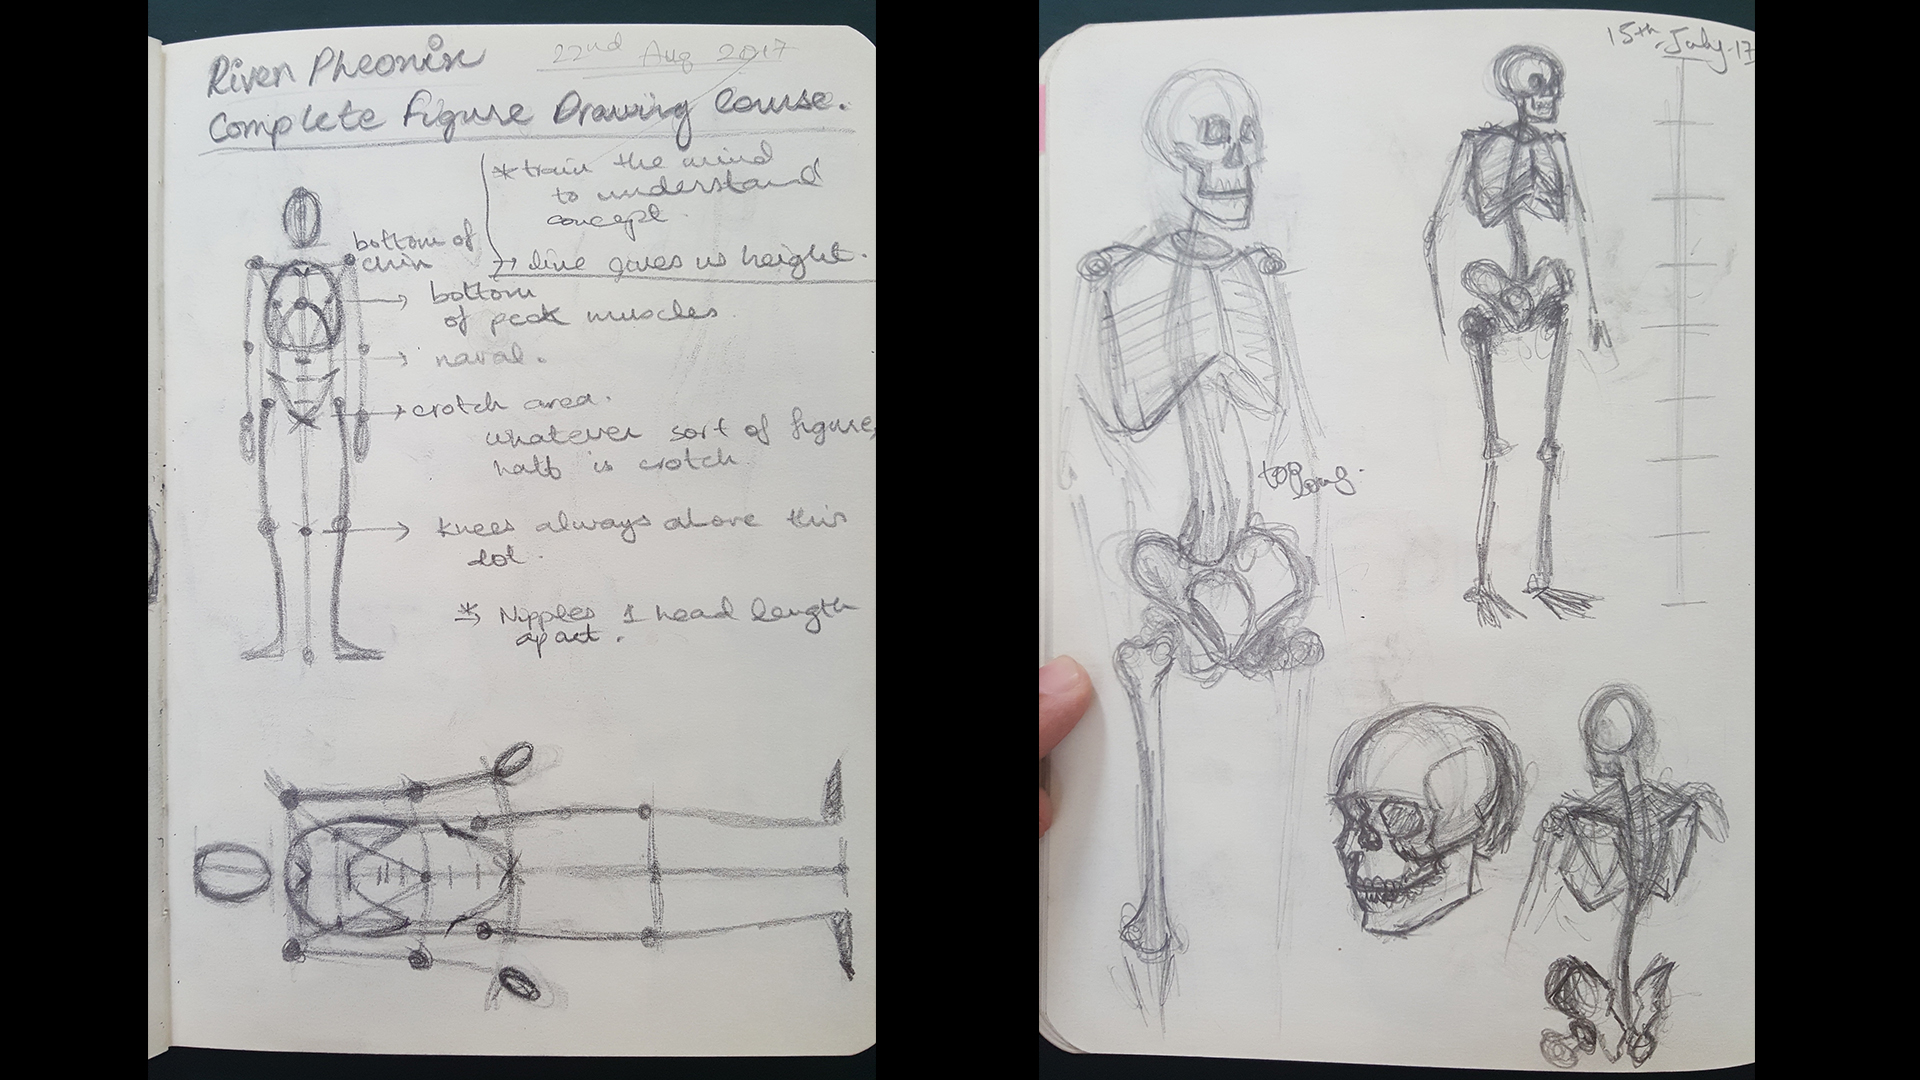 River Pheonix
22nd Aug 2017
Complete Figure Drawing Course.
* train the mind
to understand
concept.
→ line gives us height.
bottom of
chin
→ bottom
of peck muscles.
→ naval.
→ crotch area.
whatever sort of figure,
half is crotch
→ knees always above this
dot.
* Nipples 1 head length
apart.
15th July-17
too
long.